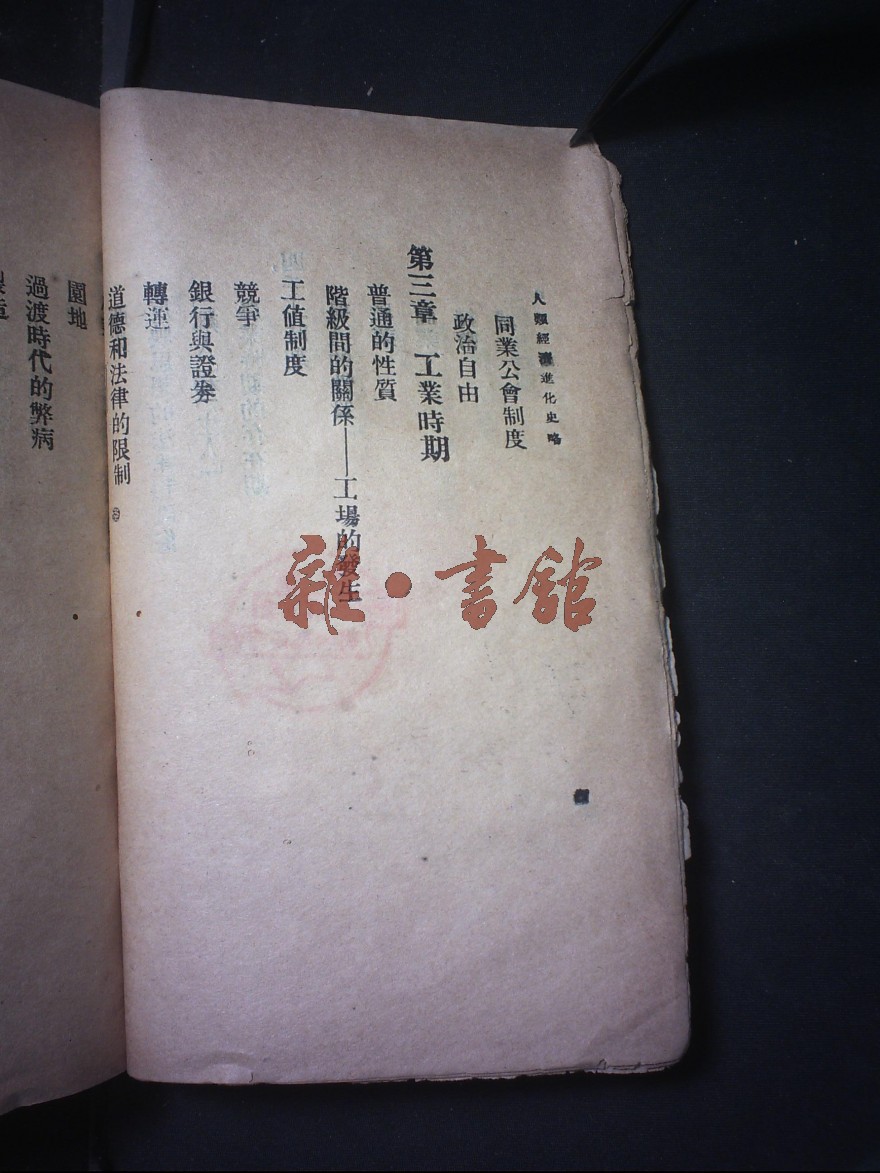 人類經濟進化史略
同業公會制度
政治自由
第三章 工業時期
普通的性質
階級間的關係——工場的發生
工值制度
競爭
銀行與證券
轉運
道德和法律的限制
園地
過渡時代的弊病
雜·書館